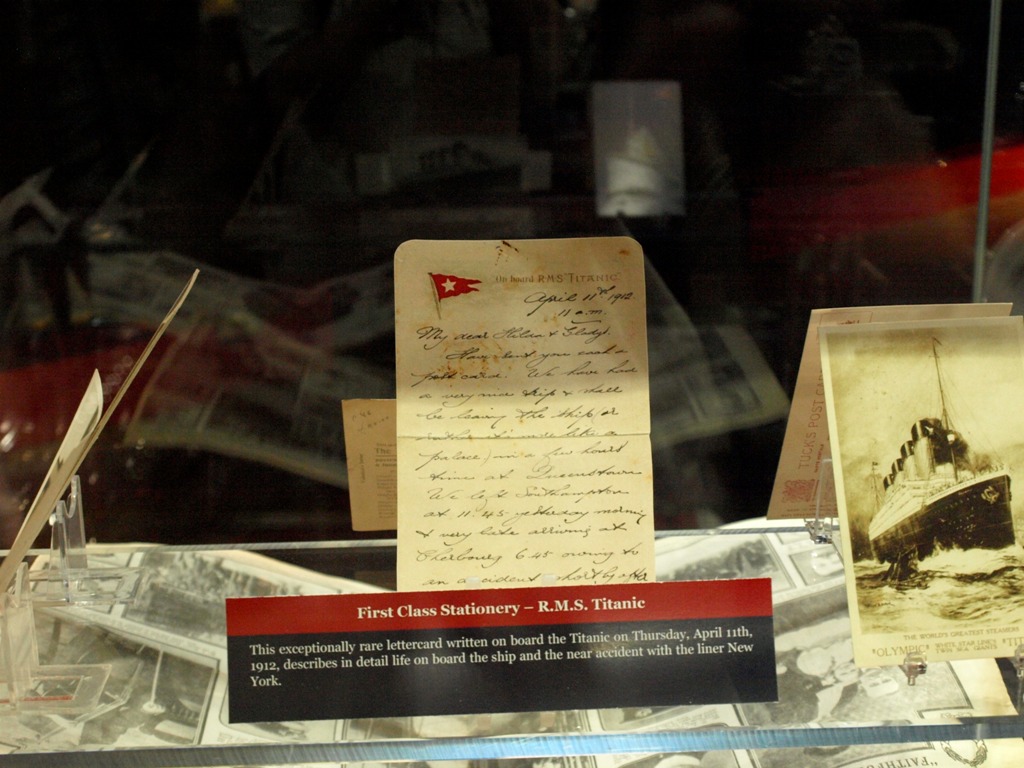 "On board R.M.S "TITANIC"
April 11th 1912
11 a.m.
My dear Hilda & Gladys
Have sent you each a
post card. We have had
a very nice trip & shall
be leaving the ship (or
rather it's more like a
palace) in a few hours
time at Queenstown
We left Southampton
at 11.45 yesterday morning
& very late arriving at
Cherbourg 6.45 owing to
an accident shortly after
First Class Stationery – R.M.S. Titanic
This exceptionally rare lettercard written on board the Titanic on Thursday, April 11th,
1912, describes in detail life on board the ship and the near accident with the liner New
York.
The
TUCK'S POST CARD
THE WORLD'S GREATEST STEAMERS
"OLYMPIC"
WHITE STAR LINE'S
"FAITHFU